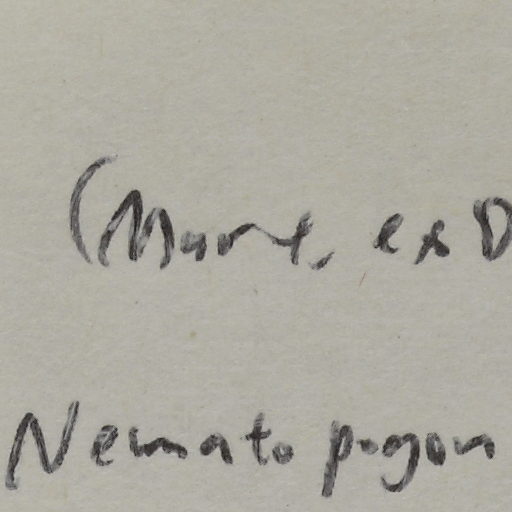 (Mune, ex D
Nematopogon